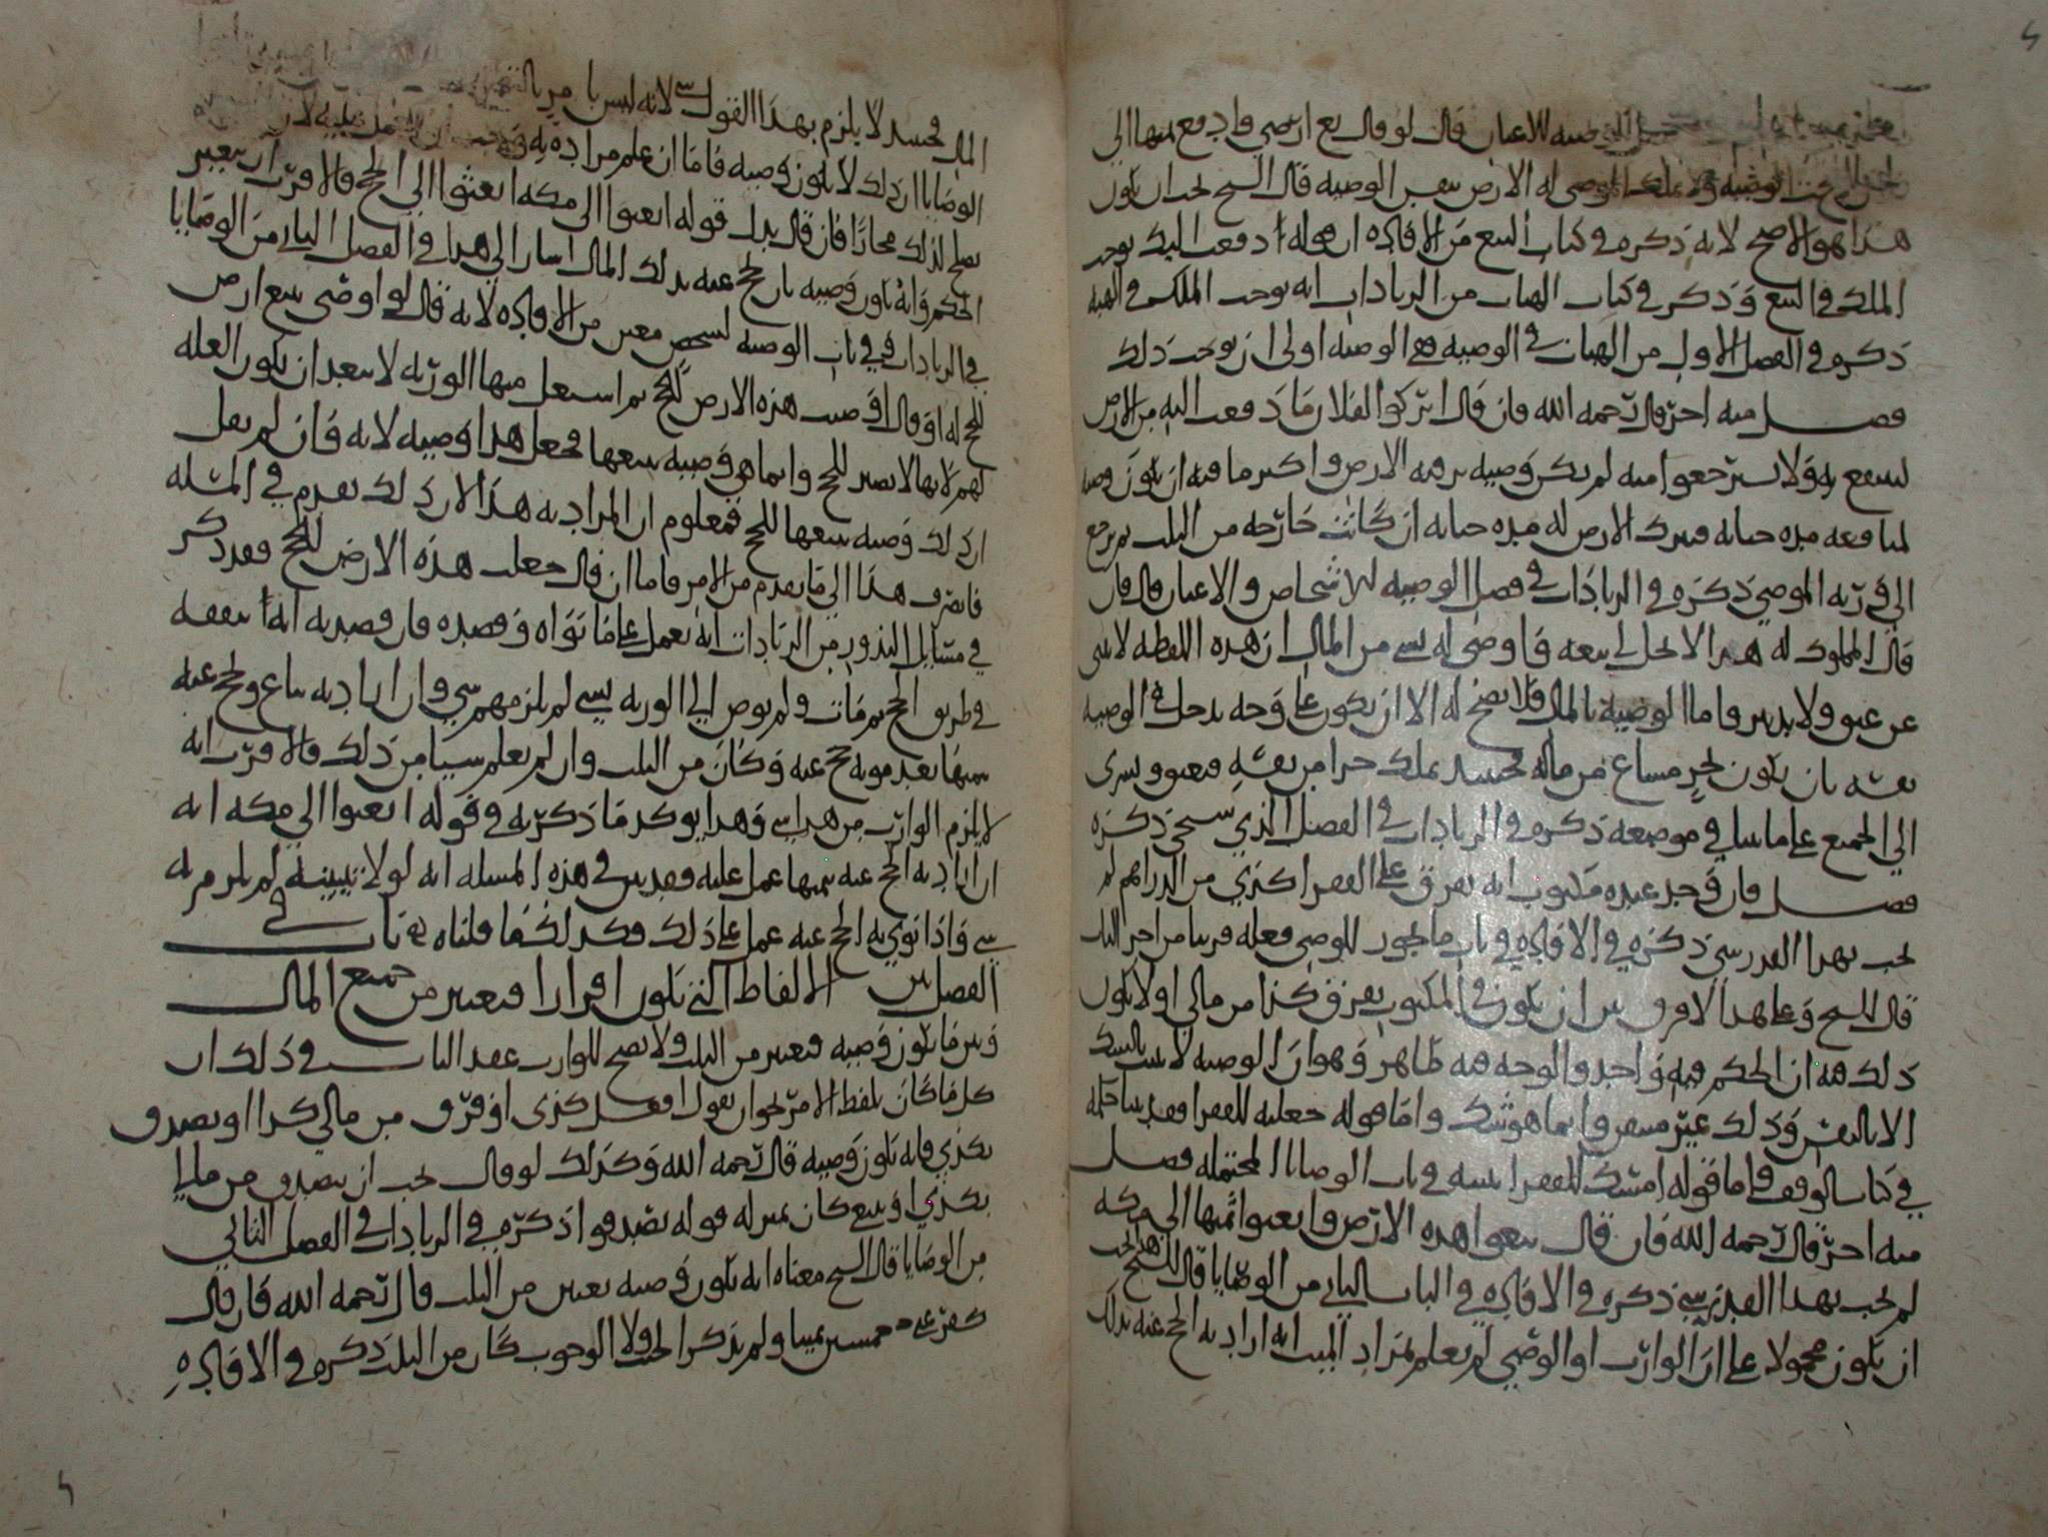 الوصيه للاعيان قال لو قال بع ارضي وادفع ثمنها الى
الوصيه ولا يملك الموصى له الارض بنفس الوصيه قال الشيخ يجب ان يكون
هذا هو الاصح لانه ذكره في كتاب البيع من الافاده ان قوله ادفعت اليك يوجب
الملك في البيع وذكر في كتاب الهبات من الزيادات انه يوجب الملك في الهبه
ذكره في الفصل الاول من الهبات في الوصيه هي الوصيه اولى ان يوجب ذلك
فصل منه اخر قال رحمه الله فان قال اتركوا لفلان ما دفعت اليه من الارض
لينتفع به ولا تسترجعوا منه لم يكن وصيه برقبه الارض واكثر ما فيه ان يكون وصيه
لمنافعه مده حياته فيترك الارض له مده حياته ان كانت خارجه من الثلث ثم يرجع
الى ورثه الموصي ذكره في الزيادات في فصل الوصيه للاشخاص والاعيان قال فان
قال لمملوك له هذا لا يحل لي بيعه واوصى له بشي من المال ان هذه اللفظه لا تنبي
عن عتق ولا تدبير واما الوصيه بالمال فلا تصح له الا ان يكون على وجه يدخل في الوصيه
نفسه بان يكون بجزء مشاع من ماله فحينئذ يملك جزا من نفسه فيعتق ويسري
الى الجميع على ما بينا في موضعه ذكره في الزيادات في الفصل الذي سيجي ذكره
فصل فان وجد عنده مكتوب انه يفرق على الفقرا كذي من الدراهم لم
يجب بهذا القدر شي ذكره في الافاده في باب ما يجوز للوصي فعله قريبا من اخر الباب
قال الشيخ وعلى هذا لا فرق بين ان يكون في المكتوب يفرق كذا من مالي او لا يكون
ذلك فيه ان الحكم فيه واحد والوجه فيه ظاهر وهو ان الوصيه لا تثبت بالشك
الا باليقين وذلك غير متيقن وانما هو شك واما قوله جعلته للفقرا فقد بينا حكمه
في كتاب الوقف واما قوله امسك للفقرا نبينه في باب الوصايا المحتمله فصل
منه اخر قال رحمه الله فان قال بيعوا هذه الارض وابعثوا ثمنها الى مكه
لم يجب بهذا القدر شي ذكره في الافاده في الباب الثاني من الوصايا قال الشيخ هذا يجب
ان يكون محمولا على ان الوارث او الوصي لم يعلم بمراد الميت انه اراد به الحج عنه بذلك
المال فحينئذ لا يلزم بهذا القول شي لانه ليس
الوصايا ان ذلك لا يكون وصيه فاما ان علم مراده به
يصلح لذلك مجازا فان قال بدل قوله ابعثوا الى مكه ابعثوا الى الحج فالاقرب ان يتغير
الحكم وانه يكون وصيه بان يحج عنه بذلك المال اشار الى هذا في الفصل الثاني من الوصايا
في الزيادات وفي باب الوصيه لشخص معين من الافاده لانه قال لو اوصى ببيع ارض
للحج له او قال اوصيت هذه الارض للحج ثم استغل منها الورثه لا يبعد ان يكون الغله
لهم لانها لا تصير للحج وانما هي وصيه ببيعها فجعل هذا وصيه لانه وان لم يقل
ان ذلك وصيه ببيعها للحج فمعلوم ان المراد به هذا لان ذلك تقدم في المسله
فانصرف هذا الى ما تقدم من الامر فاما ان قال جعلت هذه الارض للحج فقد ذكر
في مسايل النذور من الزيادات انه يعمل على ما نواه وقصده فان قصد به انه ينفقه
في طريق الحج ثم مات ولم يوص الى الورثه بشي لم يلزمهم شي وان اراد به يباع ويحج عنه
بثمنها بعد موته حج عنه وكان من الثلث وان لم يعلم شيا من ذلك فالاقرب انه
لا يلزم الوارث من هذا شي وهذا يوكد ما ذكرته في قوله ابعثوا الى مكه انه
ان اراد به الحج عنه بثمنها عمل عليه فقد بين في هذه المسله انه لولا تبيينه لم يلزم به
شي واذا نوى به الحج عنه عمل على ذلك فكذلك فيما قلناه باب في
الفصل بين الالفاظ التي تكون اقرارا فيعتبر من جميع المال
وبين ما يكون وصيه فيعتبر من الثلث ولا يصح للوارث عقد الباب في ذلك ان
كل ما كان بلفظ الامر نحو ان يقول افعل كذي او فرق من مالي كذا او تصدق
بكذي فانه يكون وصيه قال رحمه الله وكذلك لو قال يجب ان يتصدق من مالي
بكذي او يبيع كان بمنزله قوله تصدقوا ذكره في الزيادات في الفصل الثاني
من الوصايا قال الشيخ معناه انه يكون وصيه يعتبر من الثلث قال رحمه الله فان قال
كفر عني خمسين يمينا ولم يذكر الحنث ولا الوجوب كان من الثلث ذكره في الافاده